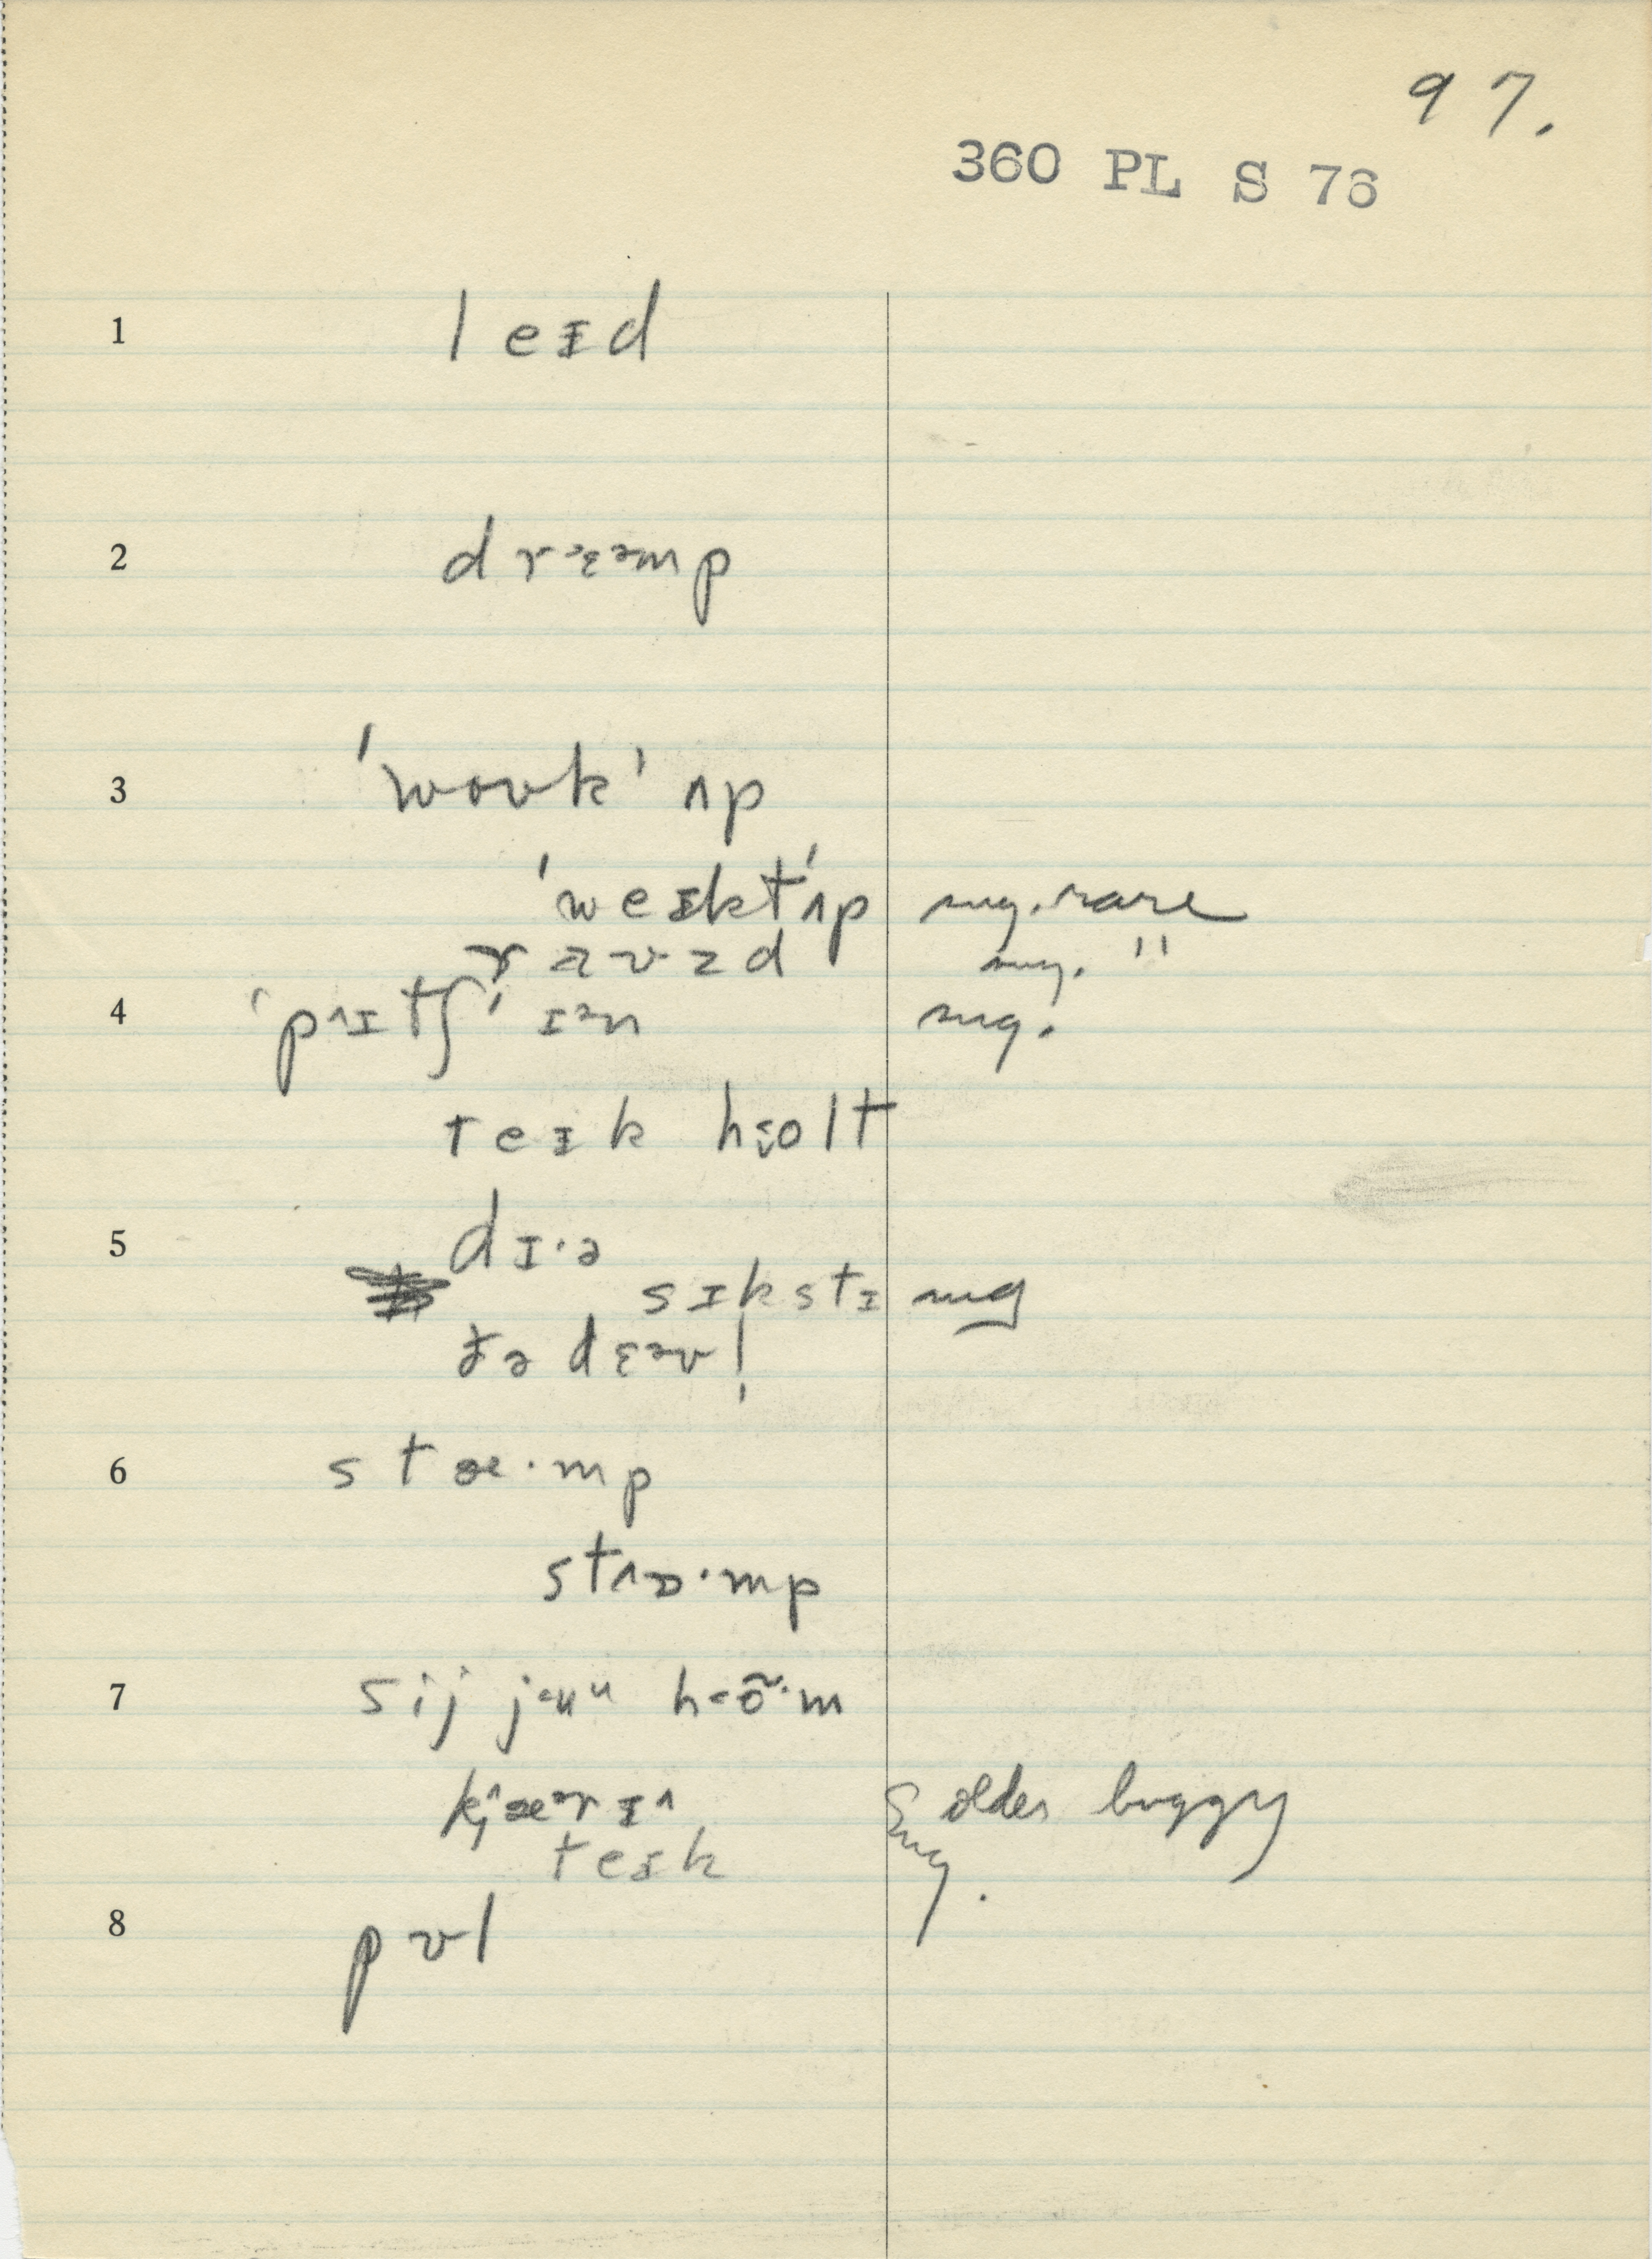 97.
360 PL S 76
1 leɪd
2 drɛəmp
3 ˈwoʊkˈ ʌp
ˈweɪktˈʌp sug. rare
raʊzd sug. "
4 ˈpʌɪtʃˈ ɪən sug.
teɪk holt
5 dɪ·ə
sɪkstɪ sug
ðə dɛəvl̩
6 stæ·mp
stɒ·mp
7 sij juu hõ·m
kjæərɪ older buggy
teɪk Sug.
8 pʊl